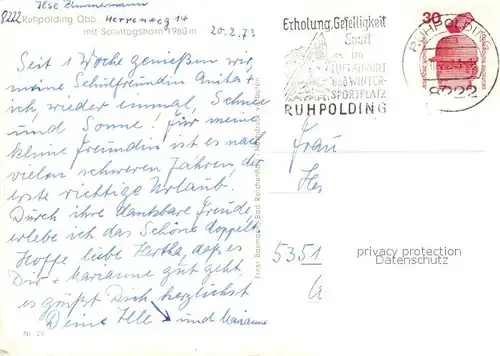 Ilse Zimmermann
8222 Ruhpolding Obb Herrenweg 14
mit Sonntagshorn 1960 m
20.2.73
Seit 1 Woche genießen wir,
meine Schulfreundin Anita +
ich, wieder einmal, Schnee
und Sonne! Für meine
kleine Freundin ist es nach
vielen schweren Jahren, der
erste richtige Urlaub.
Durch ihre dankbare Freude,
erlebe ich das Schöne doppelt.
Hoffe liebe Hertha, daß es
Dir + Marianne gut geht,
es grüßt Dich herzlichst
Deine Ille und Marianne
Nr. 23
Ernst Baumann, Bad Reichenhall
verboten
Erholung, Geselligkeit
Sport
im
LUFTKURORT
UND WINTER-
SPORTPLATZ
RUHPOLDING
30
RUHPOLDING
8222
Frau
He
5351
privacy protection
Datenschutz